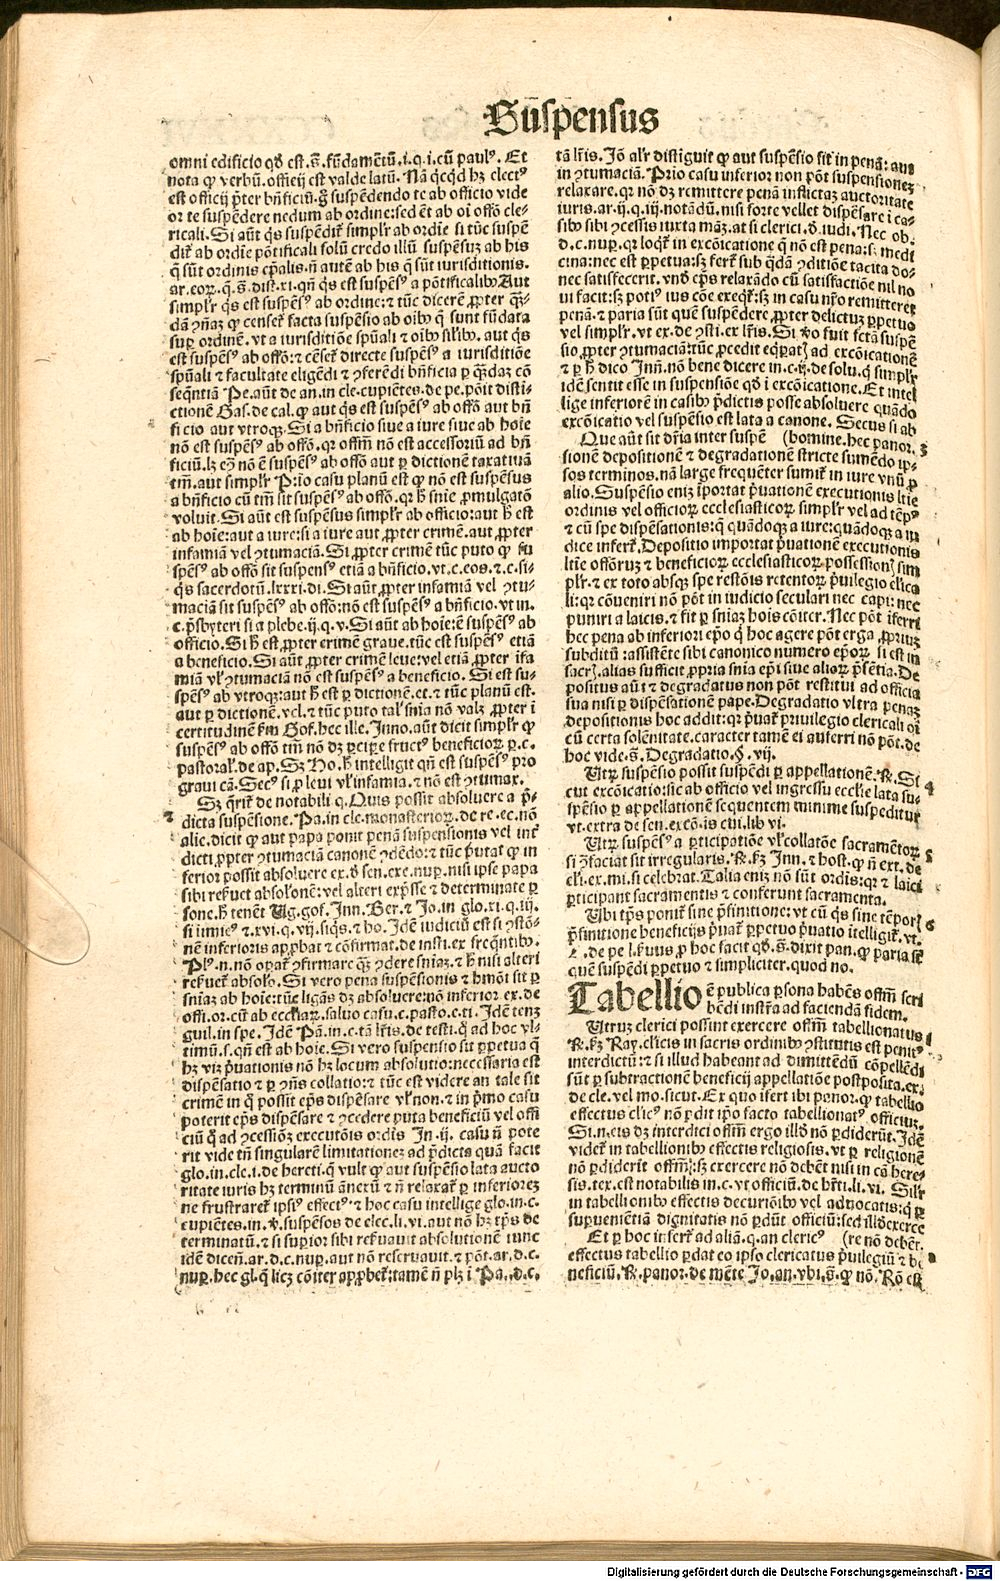 Suspensus
omni edificio qđ est.s̄. fūdamētū.i.q.i.cū paulꝰ. Et
nota ꝙ verbū.officij est valde latū. Nā qͥcqͥd hꝫ electꝰ
est officij p̄ter bn̄ficiū.g̊ suspēdendo te ab officio vide
or te suspēdere nedum ab ordine:sed ēt ab oi offō cle-
ricali. Si aūt qͥs suspēdit̉ simplr̄ ab ordīe si tūc suspē
dit̉ ab ordīe pōtificali solū credo illū suspēsuꝫ ab his
q̄ sūt ordinis ep̄alis.n̄ autē ab his q̄ sūt iurisditionis.
ar.eoꝝ.q.s̄.dist.xi.qn̄ qͥs est suspēsꝰ a pōtificalibꝰ. Aut
simplr̄ qͥs est suspēsꝰ ab ordine:⁊ tūc dicerē ꝓpter quā-
dā ꝯn̄aꝫ ꝙ censet̉ facta suspēsio ab oibꝰ q̄ sunt fūdata
suꝑ ordinē. vt a iurisditiōe spūali ⁊ oibꝰ silībꝰ. aut qͥs
est suspēsꝰ ab offō:⁊ cēset̉ directe suspēsꝰ a iurisditiōe
spūali ⁊ facultate eligēdi ⁊ ꝯferēdi bn̄ficia ꝑ quādaꝫ cō
seqn̄tiā Pe.aūt de an.in cle.cupiētes.de pe.pōit disti-
ctionē Gas.de cal.ꝙ aut qͥs est suspēsꝰ ab offō aut bn̄
ficio aut vtroqꝫ. Si a bn̄ficio siue a iure siue ab hoīe
nō est suspēsꝰ ab offō.qr offm̄ nō est accessoriū ad bn̄
ficiū.lꝫ eꝰ nō ē suspēsꝰ ab offō aut ꝑ dictionē taxatiuā
tm̄.aut simplr̄ Prīo casu planū est ꝙ nō est suspēsus
a bn̄ficio cū tm̄ sit suspēsꝰ ab offō.qr h̄ sn̄ie ꝓmulgatō
voluit. Si aūt est suspēsus simplr̄ ab officio:aut h̄ est
ab hoīe:aut a iure:si a iure aut ꝓpter crimē.aut ꝓpter
infamiā vel ꝯtumaciā. Si ꝓpter crimē tūc puto ꝙ su
spēsꝰ ab offō sit suspensꝰ etiā a bn̄ficio.vt.c.eos.⁊.c.si-
qͥs sacerdotū.lxxxi.di. Si aūt ꝓpter infamiā vel ꝯtu-
maciā sit suspēsꝰ ab offō:nō est suspēsꝰ a bn̄ficio.vt in.
c.p̄sbyteri si a plebe.ij.q.v. Si aūt ab hoīe:ē suspēsꝰ ab
officio. Si h̄ est ꝓpter crimē graue.tūc est suspēsꝰ etiā
a beneficio. Si aūt ꝓpter crimē leue:vel etiā ꝓpter īfa
miā vl̓ ꝯtumaciā nō est suspēsꝰ a beneficio. Si est su-
spēsꝰ ab vtroqꝫ:aut h̄ est ꝑ dictionē.et.⁊ tūc planū est.
aut ꝑ dictionē.vel.⁊ tūc puto tal̓ sn̄ia nō valꝫ ꝓpter ī
certitudinē ẜm Gof.hec ille. Inno.aūt dicit simplr̄ ꝙ
suspēsꝰ ab offō tm̄ nō dꝫ ꝑcipe̓ fructꝰ beneficioꝝ ꝑ.c.
pastoral̓.de ap. Sꝫ Ho.h̄ intelligit qn̄ est suspēsꝰ pro
graui cā. Secꝰ si ꝓ leui vl̓ infamia.⁊ nō est ꝯtumax.
Sꝫ qr̄it̉ de notabili q. Quis possit absoluere a p̄-
2 dicta suspēsione. Pa.in cle.monasterioꝝ.de re.ec.nō
alic.dicit ꝙ aut papa ponit penā suspensionis vel int̓
dicti ꝓpter ꝯtumaciā canonē ꝯdēdo:⁊ tūc p̄utat̉ ꝙ in
ferior possit absoluere ex.đ sen.exc.nuꝑ.nisi ipse papa
sibi reẜuet absolōnē:vel alteri exp̄sse ⁊ determinate ꝑ
sone.h̄ tenēt Ug.gof.Inn.Ber.⁊ Io.in glo.xi.q.iij.
si inimicꝰ ⁊.xvi.q.vij.siqͥs.⁊ ho. Idē iudiciū est si ꝯstōs-
nē inferioris apꝓbat ⁊ cōfirmat.de insti.ex freqn̄tibꝰ.
Plꝰ.n.nō opat̉ ꝯfirmare quā ꝯdere sn̄iaꝫ.⁊ h̄ nisi alteri
reẜuet̉ absolō. Si vero pena suspēsionis ⁊ hmōi sit ꝑ
sn̄iaꝫ ab hoīe:tūc ligās dꝫ absoluere:nō inferior ex.de
offi.or.cū ab eccl̓iaꝝ.saluo casu.c.pasto.e.ti. Idē tenꝫ
guil.in spe. Idē Pā.in.c.tā lr̄is.de testi.qͥ ad hoc vl-
timū.s.qn̄ est ab hoīe. Si vero suspensio sit ꝑpetua q̄
hꝫ viꝫ p̄uationis nō hꝫ locum absolutio:necessaria est
dispēsatio ⁊ ꝑ ꝯn̄s collatio:⁊ tūc est videre an tale sit
crimē in qͦ possit ep̄s dispēsare vl̓ non.⁊ in p̄mo casu
poterit ep̄s dispēsare ⁊ ꝯcedere puta beneficiū vel offi
ciū qͦ ad ꝯcessiōeꝫ executōis ordīs In.ij. casu n̄ pote
rit vide tn̄ singularē limitationeꝫ ad p̄dicta quā facit
glo.in.cle.i.de hereti.q̄ vult ꝙ aut suspēsio lata aucto
ritate iuris hꝫ terminū ānexū ⁊ n̄ relaxat̉ ꝑ inferioreꝫ
ne frustraret̉ ipsiꝰ effectꝰ.⁊ hoc casu intellige glo.in.c.
cupiētes.in.v̓.suspēsos de elec.li.vi.aut nō hꝫ tp̄s de
terminatū.⁊ si superior sibi reẜuauit absolutionē tunc
idē dicen̄.ar.d.c.nuꝑ.aut nō reseruauit.⁊ pōt.ar.d.c.
nuꝑ.hec gl̓.qͣ licꝫ cōiter apꝓbet̉:tamē n̄ plꝫ ī Pa.d.c.
tā lr̄is. Iō alr̄ distīguit ꝙ aut suspēsio sit in penā: aut
in ꝯtumaciā. Prīo casu inferior non pōt suspensioneꝫ
relaxare.qr nō dꝫ remittere penā inflictaꝫ auctoritate
iuris.ar.ij.q.iij.notādū.nisi forte vellet dispēsare ī ca-
sibꝰ sibi ꝯcessis iuxta māꝫ.at si clerici.đ.iudi. Nec ob.
d.c.nuꝑ.qr loqͥt̉ in excōicatione q̄ nō est pena:sꝫ medi
cina:nec est ꝑpetua:sꝫ fert̉ sub qͣdā ꝯditiōe tacita do-
nec satisfecerit. vnđ ep̄s relaxādo cū satisfactiōe nil no
ui facit:sꝫ potiꝰ ius cōe exeqͥt̉:sꝫ in casu nr̄o remitteret
penā.⁊ paria sūt quē suspēdere ꝓpter delictuꝫ ꝑpetuo
vel simplr̄.vt ex.de ꝯsti.ex lr̄is. Si v̓o fuit fctā suspē
sio ꝓpter ꝯtumaciā:tūc ꝓcedit eqͥpatꝫ ad excōicationē
⁊ ꝑ h̄ dico Inn̄.nō bene dicere in.c.ij.de solu.q̄ simplr̄
idē sentit esse in suspēsiōe qđ ī excōicatione. Et intel
lige inferiorē in casibꝰ p̄dictis posse absoluere quādo
excōicatio vel suspēsio est lata a canone. Secus si ab
Que aūt sit dr̄ia inter suspē (homine.hec panor. 3
sionē depositionē ⁊ degradationē stricte sumēdo ip-
sos terminos.nā large frequēter sumit̉ in iure vnū ꝓ
alio. Suspēsio eniꝫ īportat p̄uationē executionis litīe
ordinis vel officioꝝ ecclesiasticoꝝ simplr̄ vel ad tēpꝰ
⁊ cū spe dispēsationis:q̄ quādoqꝫ a iure:quādoqꝫ a iu
dice infert̉. Depositio importat p̄uationē executionis
litīe offōruꝫ ⁊ beneficioꝝ ecclesiasticoꝝ possessionꝫ sim
plr̄.⁊ ex toto absqꝫ spe restōis retentoꝝ p̄uilegio cl̓ica
li:qr cōueniri nō pōt in iudicio seculari nec capi: nec
puniri a laicis.⁊ fit ꝑ sn̄iaꝫ hoīs cōiter. Nec pōt īferri
hec pena ab inferiori ep̄o qͥ hoc agere pōt erga ꝓpriuꝫ
subditū:assistēte sibi canonico numero ep̄oꝝ si est in
sacrꝫ.alias sufficit ꝓpria sn̄ia ep̄i siue alioꝝ p̄sētia. De
positus aūt ⁊ degradatus non pōt restitui ad officia
sua nisi ꝑ dispēsationē pape. Degradatio vltra penaꝫ
depositionis hoc addit:qr p̄uat̉ priuilegio clericali qͥ
cū certa solēnitate.caracter tamē ei auferri nō pōt.de
hoc vide.s̄. Degradatio.§.vij.
Utꝝ suspēsio possit suspēdi ꝑ appellationē.℟. Si
cut excōicatio:sic ab officio vel ingressu eccl̓ie lata su- 4
spēsio ꝑ appellationē sequentem minime suspēditur
vt.extra de sen.excō.is cui.lib vi.
Utꝝ suspēsꝰ a ꝑticipatiōe vl̓ collatōe sacramētoꝝ 5
si ꝯfaciat sit irregularis.℟.ẜꝫ Inn.⁊ host.ꝙ n̄ ext.de
cl̓i.ex.mi.si celebrat. Talia eniꝫ nō sūt ordīs:qr ⁊ laici
ꝑticipant sacramentis ⁊ conferunt sacramenta.
Ubi tp̄s ponit̉ sine p̄finitione:vt cū qͥs sine tēporꝫ 6
p̄finitione beneficijs p̄uat̉ ꝑpetuo p̄uatio ītelligit̉.vt.
c.de pe.l.seruus ꝓ hoc facit qđ.s̄.dixit pan.ꝙ paria sē
quē suspēdi ꝑpetuo ⁊ simpliciter.quod no.
Tabellio ē publica ꝑsona habēs offm̄ scri
bēdi instrā ad faciendā fidem.
Utruꝫ clerici possint exercere offm̄ tabellionatus 1
℟.ẜꝫ Ray.clīcis in sacris ordinibꝰ ꝯstitutis est penitꝰ
interdictū:⁊ si illud habeant ad dimittēdū cōpellēdi
sūt ꝑ subtractionē beneficij appellatiōe postposita.ex.
de cle.vel mo.sicut. Ex quo īfert ibi panor.ꝙ tabellio
effectus clīcꝰ nō ꝑdit ip̄o facto tabellionatꝰ officiuꝫ.
Si.n.eis dꝫ interdici offm̄ ergo illđ nō ꝑdiderūt. Idē
videt̉ in tabellionibꝰ effectis religiosis.vt ꝑ religionē
nō ꝑdiderit offm̄:sꝫ exercere nō debēt nisi in cā here-
sis.tex.est notabilis in.c.vt officiū.de hr̄ti.li.vi. Silr̄
in tabellionibꝰ effectis decuriōibꝰ vel aduocatis:qͥ ꝑ
suꝑueniētiā dignitatis nō ꝑdūt officiū:sed illđ exerce
Et ꝑ hoc infert̉ ad aliā.q.an clericꝰ (re nō debēt.
effectus tabellio ꝑdat eo ipso clericatus p̄uilegiū ⁊ be 2
neficiū.℟.panor.de mēte Io.an.vbi.s̄.ꝙ nō. Rō est